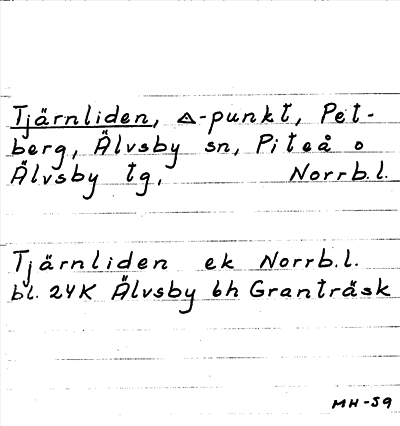 Tjärnliden, △-punkt, Pet-
berg, Älvsby sn, Piteå o
Älvsby tg, Norrb.l.
Tjärnliden ek Norrb.l.
bl. 24K Älvsby bh Granträsk
MH-59